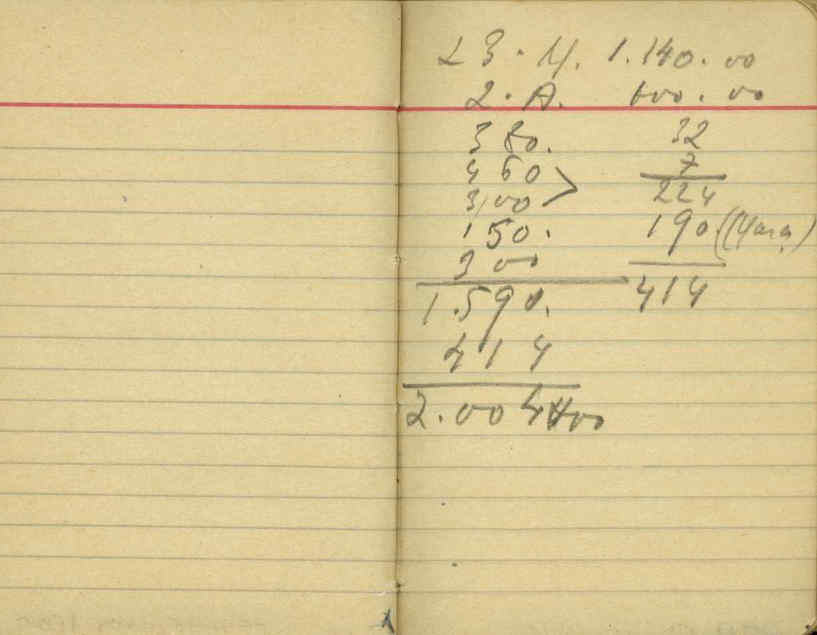 23. M. 1.140.00
2. A. 600.00
380.
460
300
150.
300
1.590.
414
2.004
32
7
224
190.
414